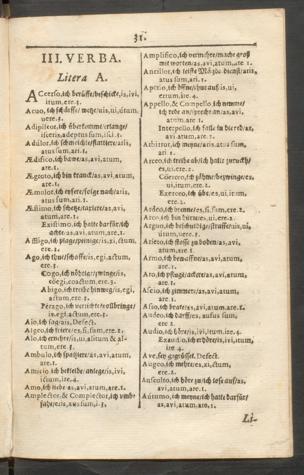 31.
III. VERBA.
Litera A.
ACcerso, ich beruffe/beschicke, is, ivi,
itum, ere 3.
Acuo, ich schärffe/wetze/uis, ui, útum,
uere. 3.
Adipiscor, ich
isceris, adeptus sum, isci. 3.
Adúlor, ich schmeichle/
aris, átus sum, ari. 1.
Ædifico, ich bawe/as, avi, atum,
are. 1.
Ægroto, ich bin kranck/as, avi, atum,
are. 1.
Æmulor, ich
aris, átus sum, ari. 1.
Æstimo, ich schetze/
atum, are. 1.
Existimo, ich halte darfür/ich
achte/as, avi, atum, are. 1.
Affligo, ich plage/peinige/is, xi, ctum,
ere. 3.
Ago, ich thue/schaffe/is, egi, actum,
ere. 3.
Cogo, ich nöhtige/zwinge/is,
cöegi, coactum, ere. 3.
Abigo, ich treibe hinweg/is, egi,
actum, ere. 3.
Perago, ich verrichte/vollbringe/
is, egi, actum, ere. 3.
Aio, ich sag/ais, Defect.
Algeo, ich friere/es, si, sum, ere. 2.
Alo, ich ernehre/is, ui, alitum & al-
tum, ere 3.
Ambulo, ich spatziere/as, avi, atum,
are. 1.
Amicio, ich bekleide/anlege/is, ivi,
ictum, ire. 4.
Amo, ich liebe/as, avi, atum, are. 1.
Amplector & Complector, ich umb-
fahe/eris, xus sum, i. 3.
Amplifico, ich vermehre/mache groß
mit worten/as, avi, atum, are 1.
Ancillor, ich leiste Mägde dienst/aris,
atus sum, ari. 1.
Aperio, ich öffne/thue auff/is, ui,
ertum, ire. 4.
Appello, & Compello, ich nenne/
ich rede an/spreche an/as, avi,
atum, are 1.
Interpello, ich falle in die red/as,
avi, atum, are 1.
Arbitror, ich meyne/aris, atus sum,
ari 1.
Arceo, ich treibe ab/ich halte zurück/
es, ui, ere 2.
Coërceo, ich zähme/bezwinge/es,
ui, itum, ere 2.
Exerceo, ich übe, es, ui, itum,
ere. 2.
Ardeo, ich brenne/es, si, sum, ere 2.
Areo, ich bin dürr/es, ui, ere 2.
Arguo, ich beschuldige/straffe/uis, ui,
útum, uere. 3.
Arieto, ich stosse zu boden/as, avi,
atum, are 1.
Armo, ich bewaffne/as, avi, atum,
are. 1.
Aro, ich pflüge/ackere/as, avi, atum,
are. 1.
Ascio, ich zimmere/as, avi, atum,
are. 1.
Asso, ich brate/as, avi, atum, are. 1.
Audeo, ich darff/es, ausus sum,
ere. 2.
Audio, ich höre/is, ivi, itum, ire. 4.
Exaudio, ich erhöre/is, ivi, itum,
ire. 4.
Ave, sey gegrüsset. Defect.
Augeo, ich mehre/es, xi, ctum,
ere. 2.
Ausculto, ich höre zu/ich lose auff/as,
avi, atum, are. 1.
Autumo, ich meyne/ich halte darfür/
as, avi, atum, are 1.
Li-